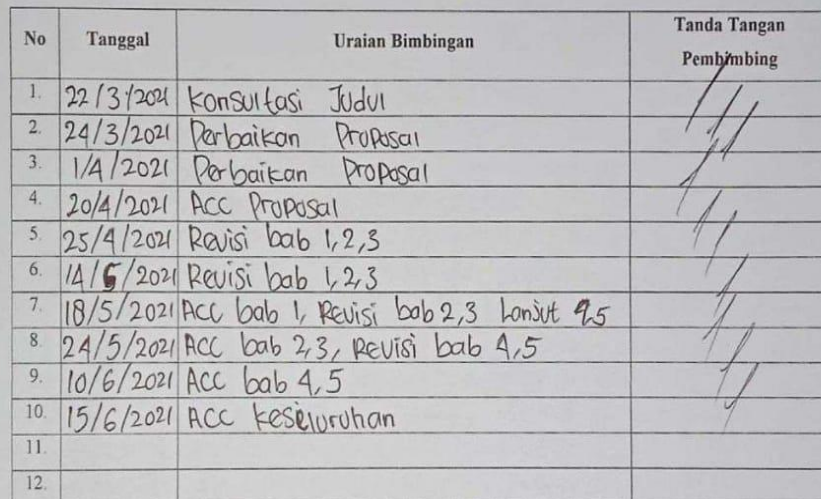 No Tanggal Uraian Bimbingan Tanda Tangan Pembimbing
1. 22/3/2021 Konsultasi Judul
2. 24/3/2021 Perbaikan Proposal
3. 1/4/2021 Perbaikan Proposal
4. 20/4/2021 ACC Proposal
5. 25/4/2021 Revisi bab 1,2,3
6. 14/5/2021 Revisi bab 1,2,3
7. 18/5/2021 ACC bab 1, Revisi bab 2,3 Lanjut 4,5
8. 24/5/2021 ACC bab 2,3, Revisi bab 4,5
9. 10/6/2021 ACC bab 4,5
10. 15/6/2021 ACC keseluruhan
11.
12.